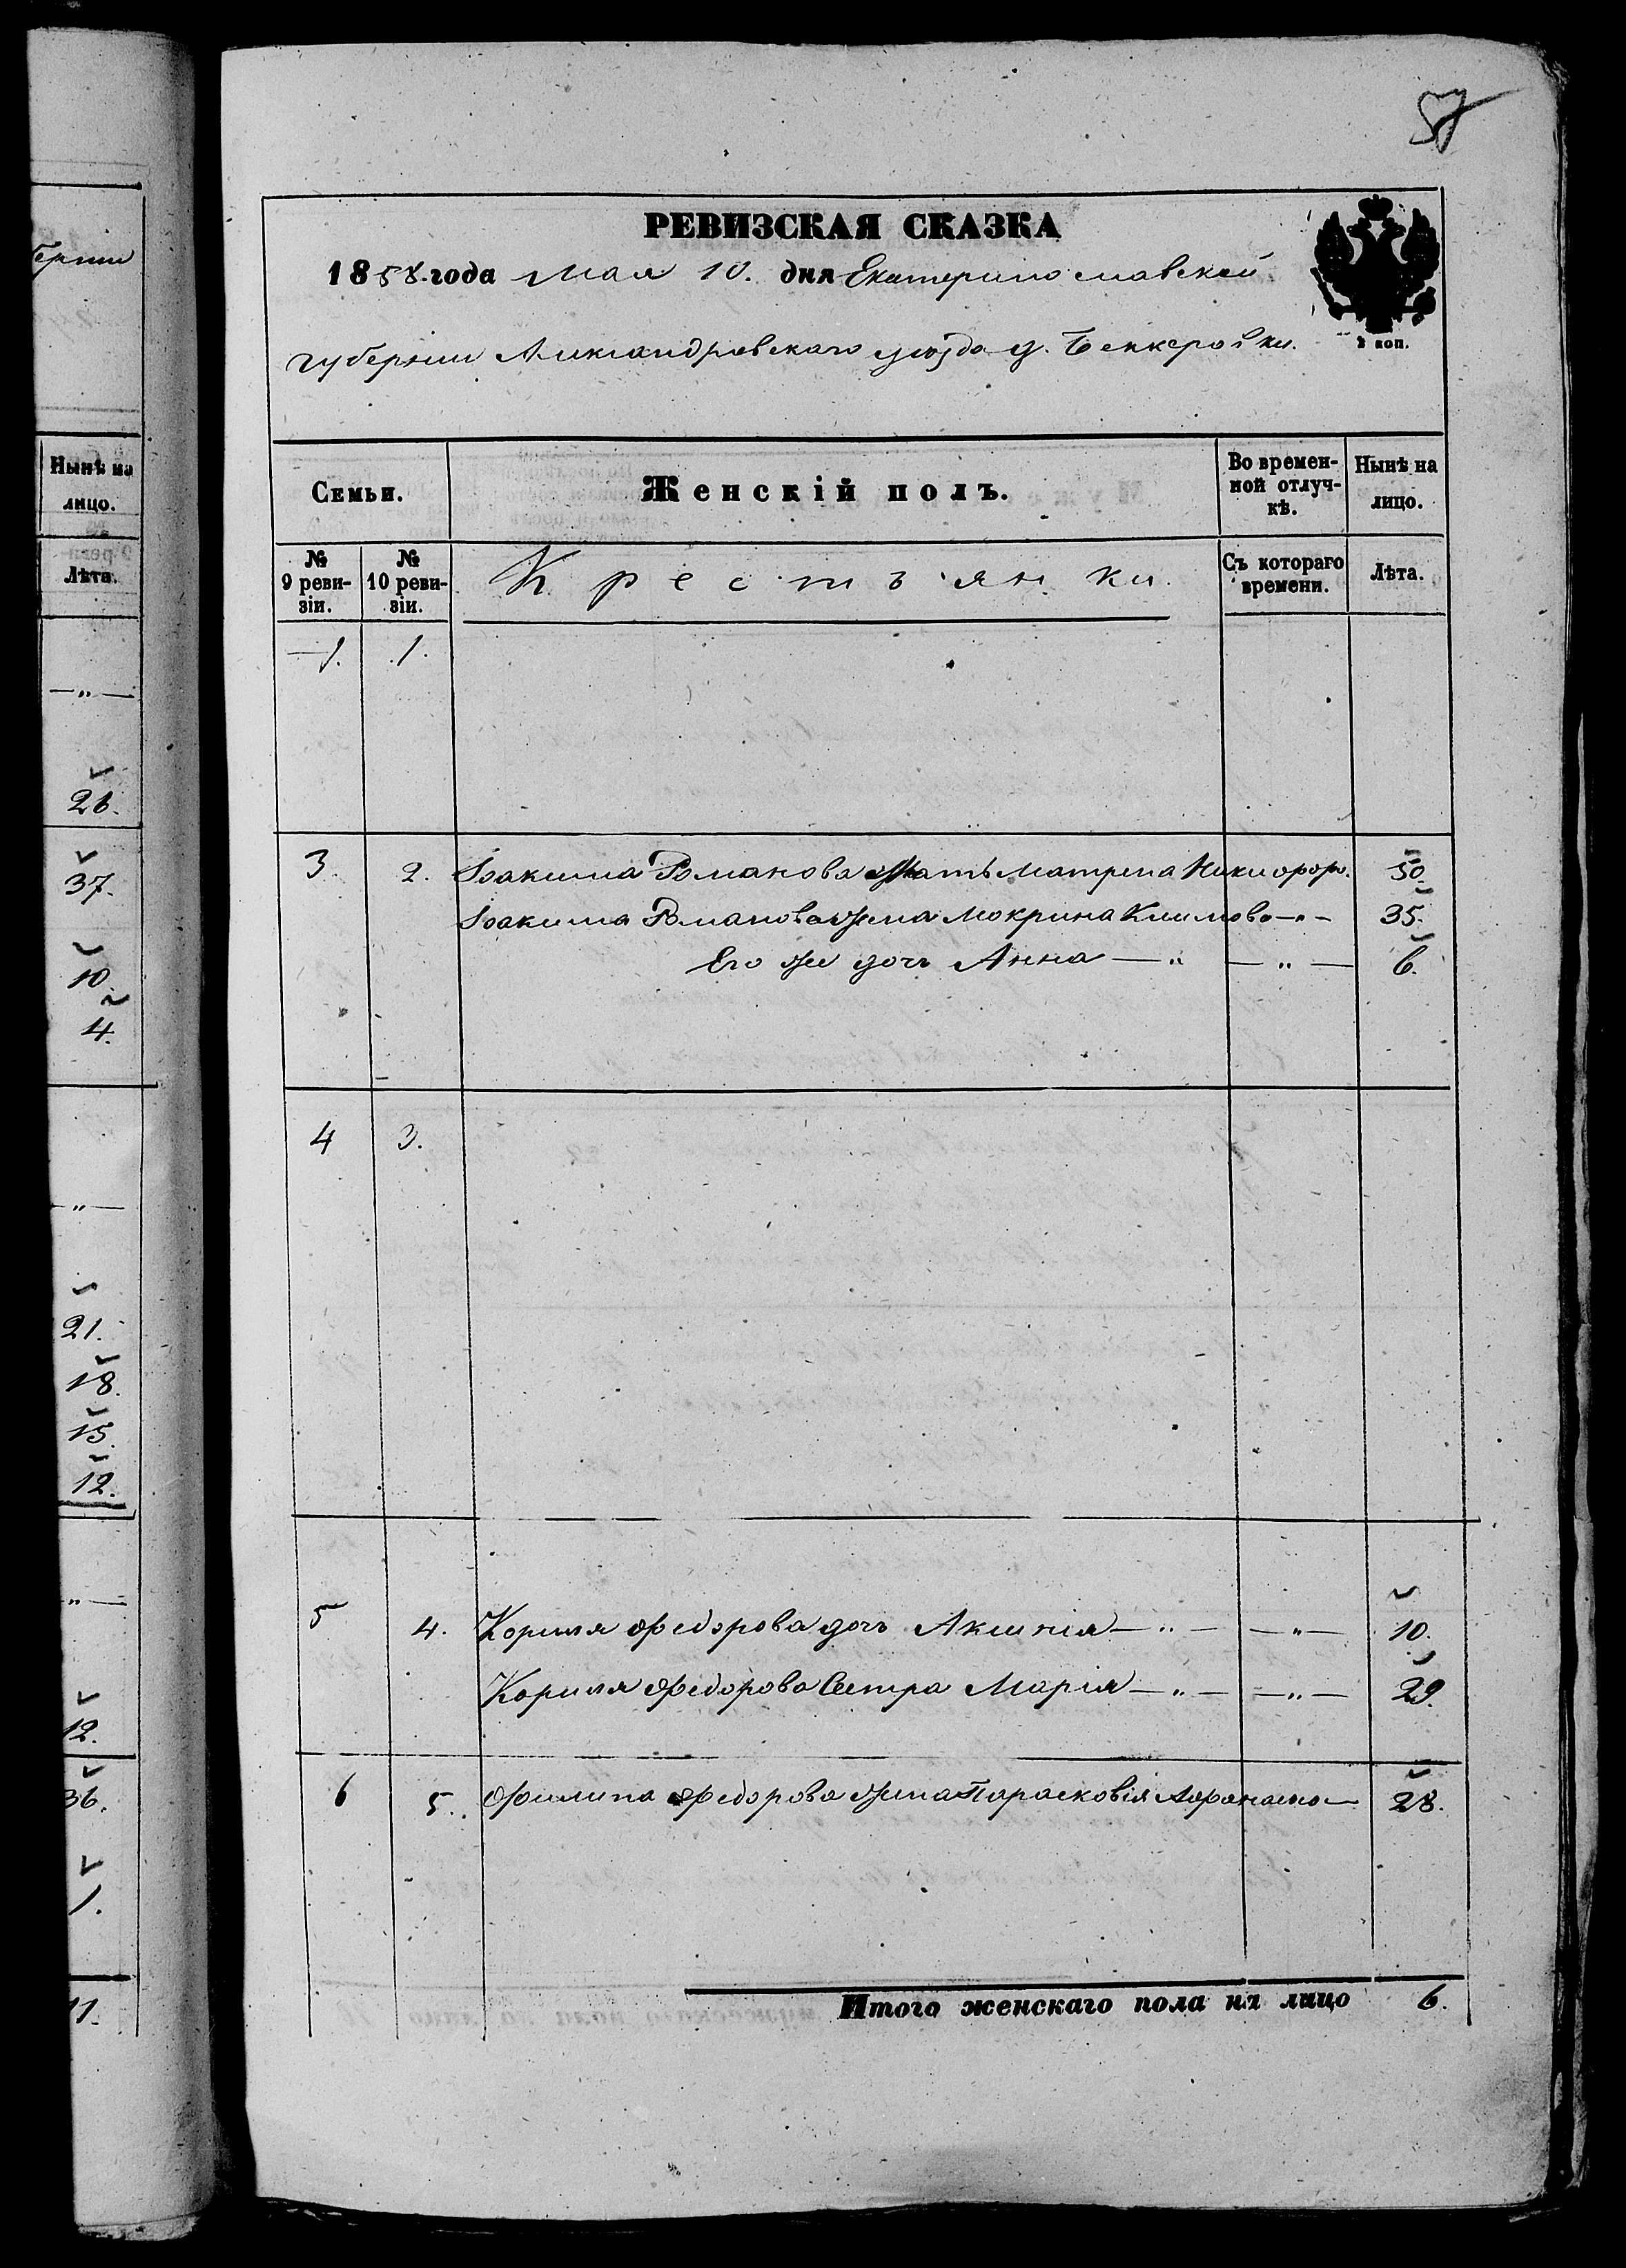 57
РЕВИЗСКАЯ СКАЗКА
1858 года Мая 10. дня Екатеринославской
губернии Александровскаго уезда д. Бенкеровки.
2 коп.
Семьи.
Женскій полъ.
Во времен-
ной отлуч-
кѣ.
Нынѣ на
лицо.
№
9 реви-
зіи.
№
10 реви-
зіи.
Крестьянки.
Съ котораго
времени.
Лѣта.
1. 1.
3. 2. Іоакима Романова мать Матрена Никифоро. 50.
Іоакима Романова жена Мокрина Климова —"— 35.
Его же дочь Анна —" —"— 6.
4 3.
5 4. Корнея Федорова дочь Аксинія —"— —"— 10.
Корнея Федорова сестра Марія —"— —"— 29.
6 5. Филипа Федорова жена Парасковія Афанасно— 28.
Итого женскаго пола на лицо 6.
берніи
Нынѣ на
лицо.
Лѣта.
—"—
26.
37.
10.
4.
—"—
21.
18.
15.
12.
—"—
12.
36.
1.
11.